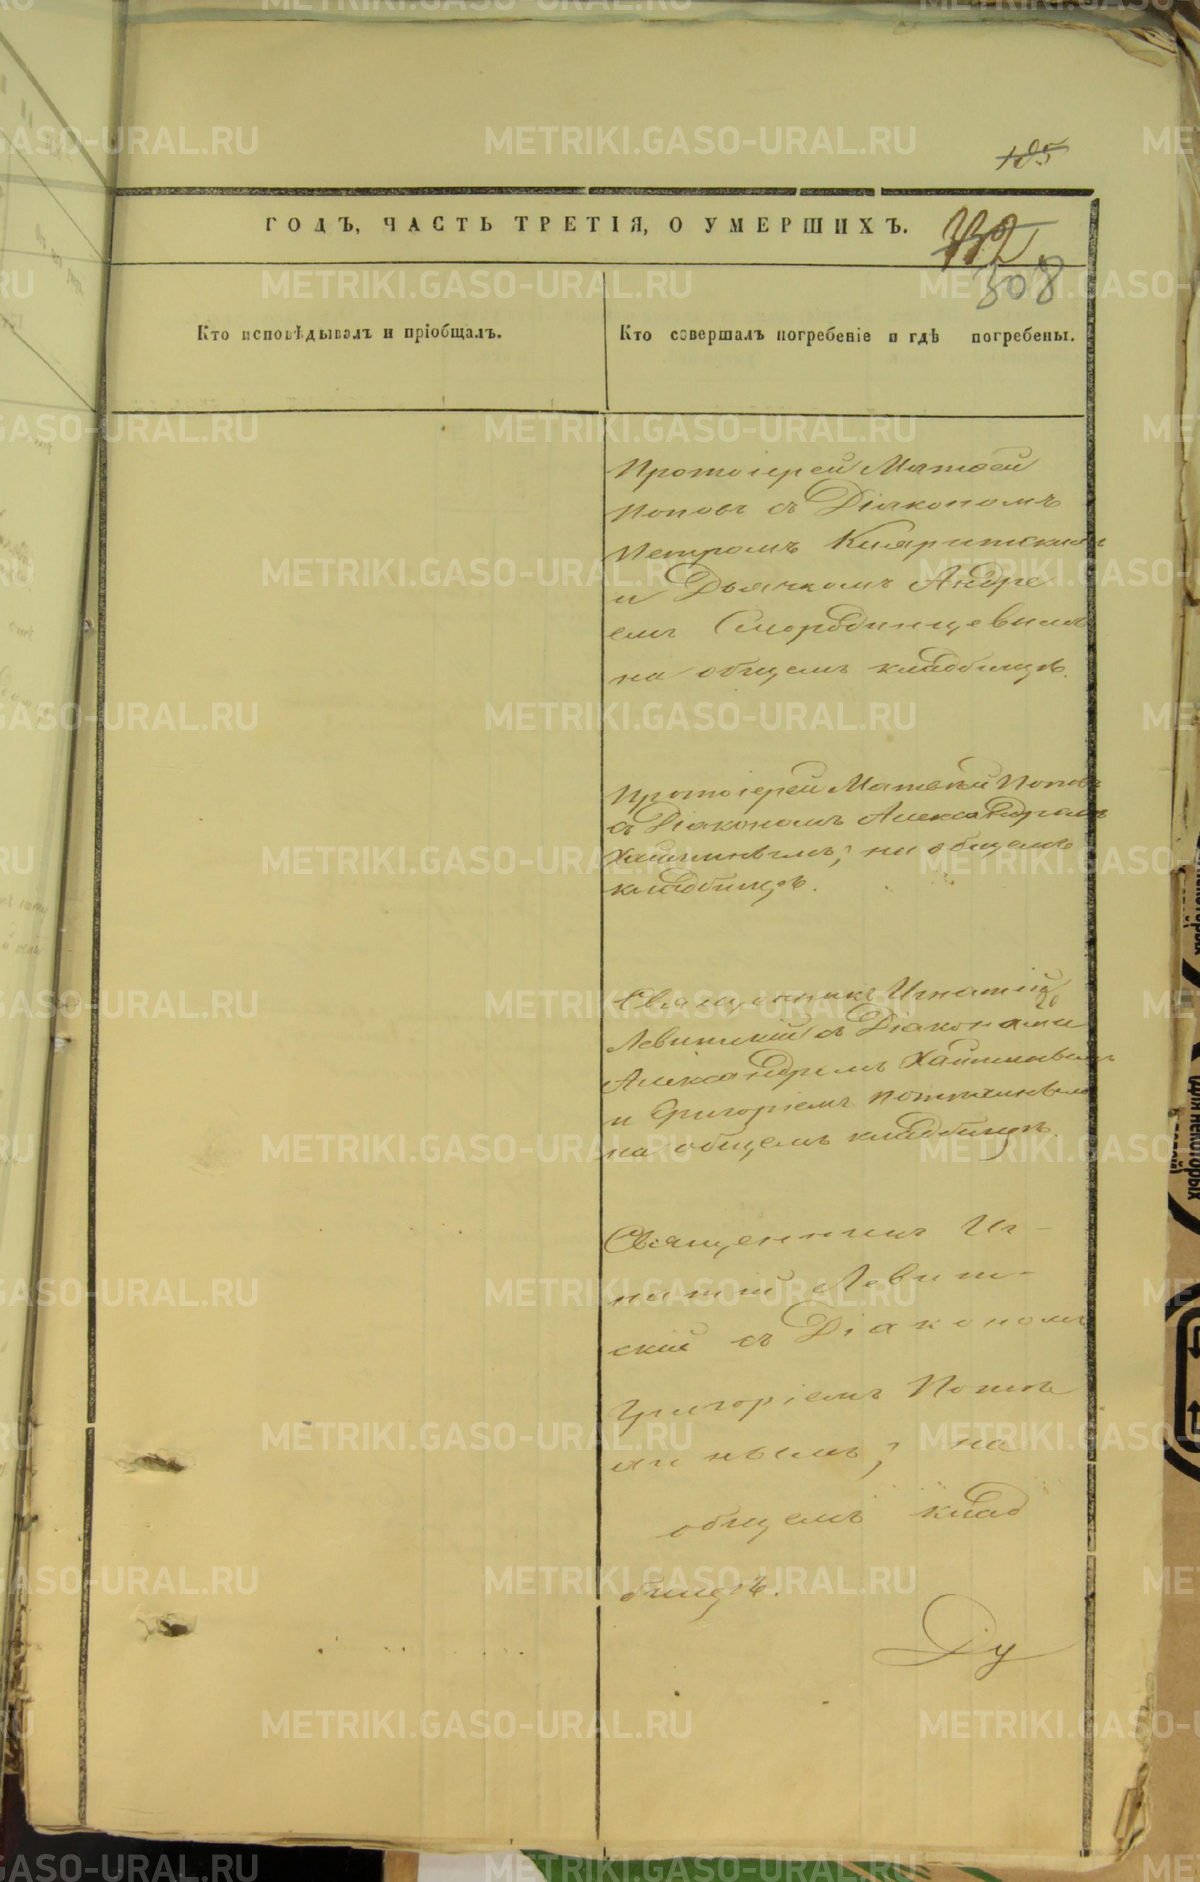 185
ГОДЪ, ЧАСТЬ ТРЕТІЯ, О УМЕРШИХЪ.
732
308
Кто исповѣдывалъ и пріобщалъ.
Кто совершалъ погребеніе и гдѣ погребены.
Протоіерей Матѳей
Поповъ съ Діакономъ
Петромъ
и Дьячкомъ Андре
емъ Смородинцевымъ
на общемъ кладбищѣ.
Протоіерей Матвѣй Поповъ
съ Діакономъ Александромъ
на общемъ
кладбищѣ.
Священникъ Игнатій
Левитскій съ Діаконами
Александромъ
и Григоріемъ
на общемъ кладбищѣ.
Священникъ Иг-
натій Левит-
скій съ Діакономъ
Григоріемъ
на
общемъ клад
бищѣ.
Ду
METRIKI.GASO-URAL.RU